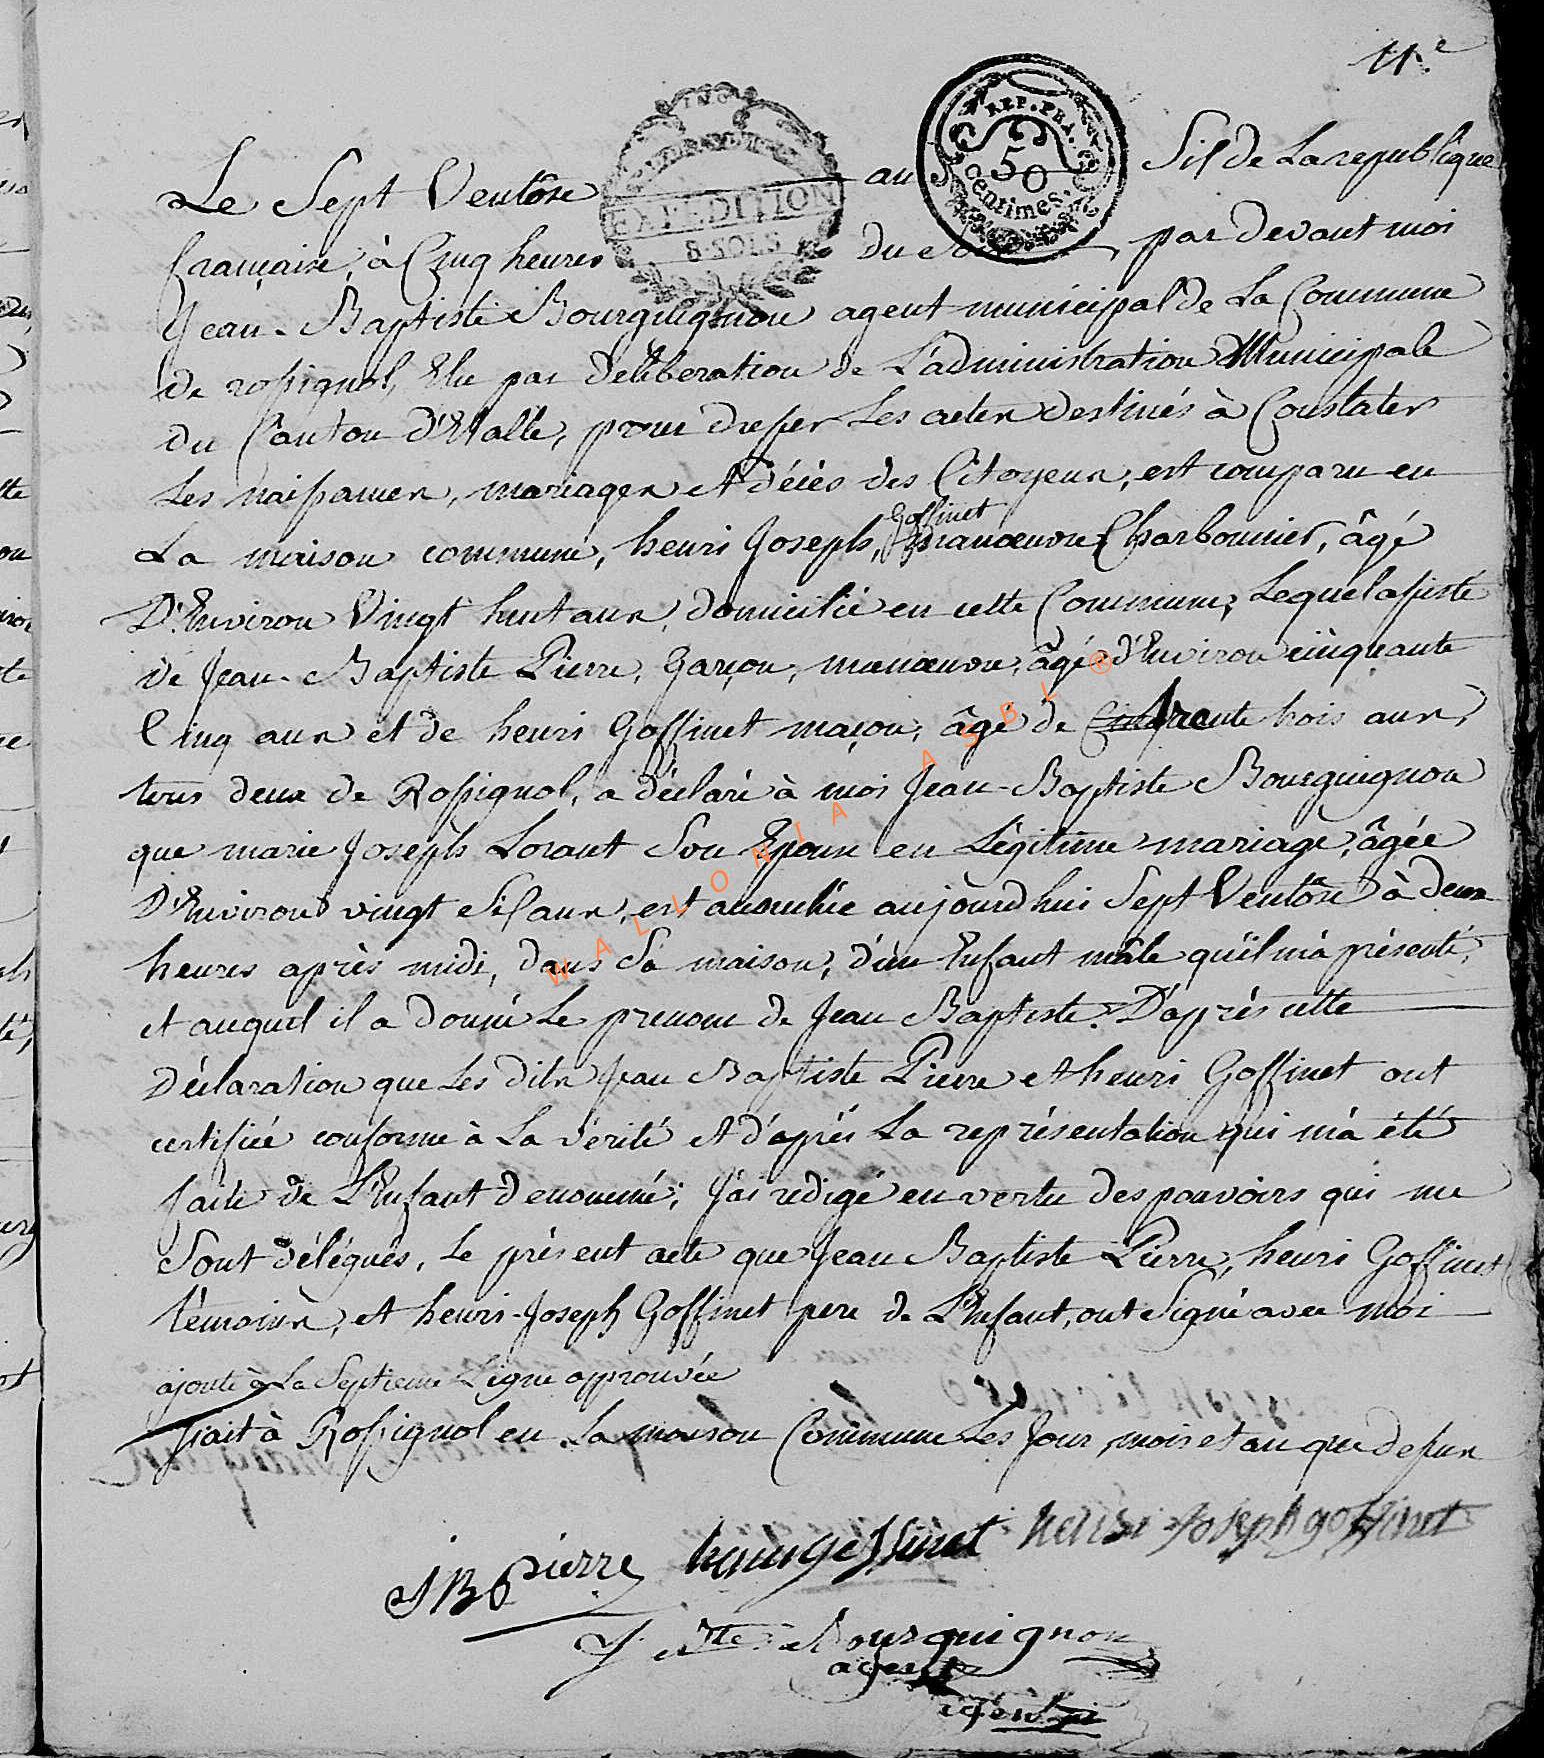 11.e
Le Sept Ventôse an Six de La republique
française, à Cinq heures du soir, par devant moi
Jean-Baptiste Bourguignon agent municipal de La Commune
de rossignol, Elu par déliberation de L'administration Municipale
du Canton d'Etalle, pour dresser Les actes destinés à Constater
Les naissances, mariages et décès des Citoyens, est comparu en
Goffinet
La maison commune, henri Joseph, manoeuvre Charbonnier, âgé
D'Environ Vingt huit ans, domicilié en cette Commune, Lequel assisté
de Jean-Baptiste Pierre, Garçon, manoeuvre, âgé d'Environ cinquante
Cinq ans et de henri Goffinet maçon, âgé de trente trois ans,
tous deux de Rossignol, a déclaré à moi Jean-Baptiste Bourguignon
que marie Joseph Lorant Son Epouse en Légitime mariage, âgée
D'Environ vingt Six ans, est accouchée aujourd'hui Sept Ventôse à deux
heures après midi, dans Sa maison, d'un Enfant mâle qu'il m'a présenté,
et auquel il a donné Le prenom de Jean Baptiste. D'après cette
Déclaration que Les dits Jean Baptiste Pierre et henri Goffinet ont
certifiée conforme à La vérité et d'après La représentation qui m'a été
faite de L'Enfant denommé; J'ai redigé en vertu des pouvoirs qui me
Sont délégués, Le présent acte que Jean Baptiste Pierre, henri Goffinet
témoins, et henri-Joseph Goffinet pere de L'Enfant, ont Signé avec moi
ajoute à La Septieme Ligne approuvée
fait à Rossignol en La maison Commune Les Jour, mois et an que dessus
JB Pierre henri goffinet henri Joseph goffinet
J. Bte Bourguignon
agent
REP. FRA.
50
centimes
EXPEDITION
8 SOLS
WALLONIA ASBL ®